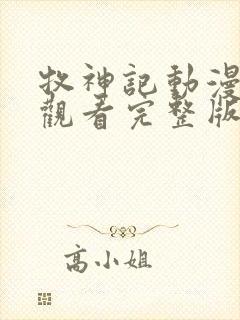 牧神記動漫
觀看完整版
高小姐